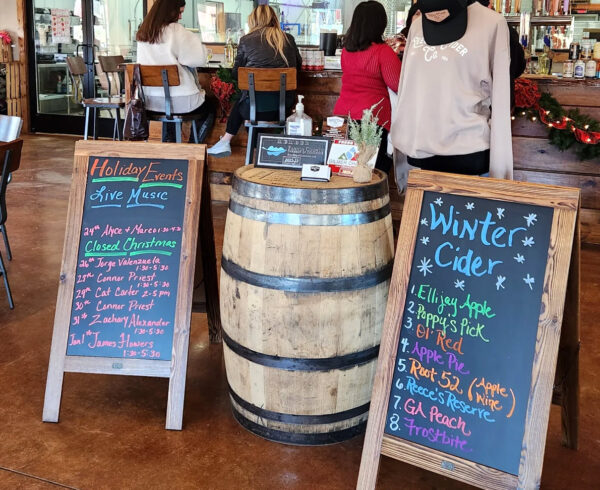 Holiday Events
Live Music
24th Alyce & Marco 1:30-4:30
Closed Christmas
26th Jorge Valenzuela
1:30-5:30
28th Connor Priest
1:30-5:30
29th Cat Carter 2-5pm
30th Connor Priest
1:30-5:30
31st Zachary Alexander
1:30-5:30
Jan 1st James Flowers
1:30-5:30
Winter
Cider
1. Ellijay Apple
2. Poppy's Pick
3. Ol' Red
4. Apple Pie
5. Root 52 (Apple Wine)
6. Reece's Reserve
7. GA Peach
8. Frostbite